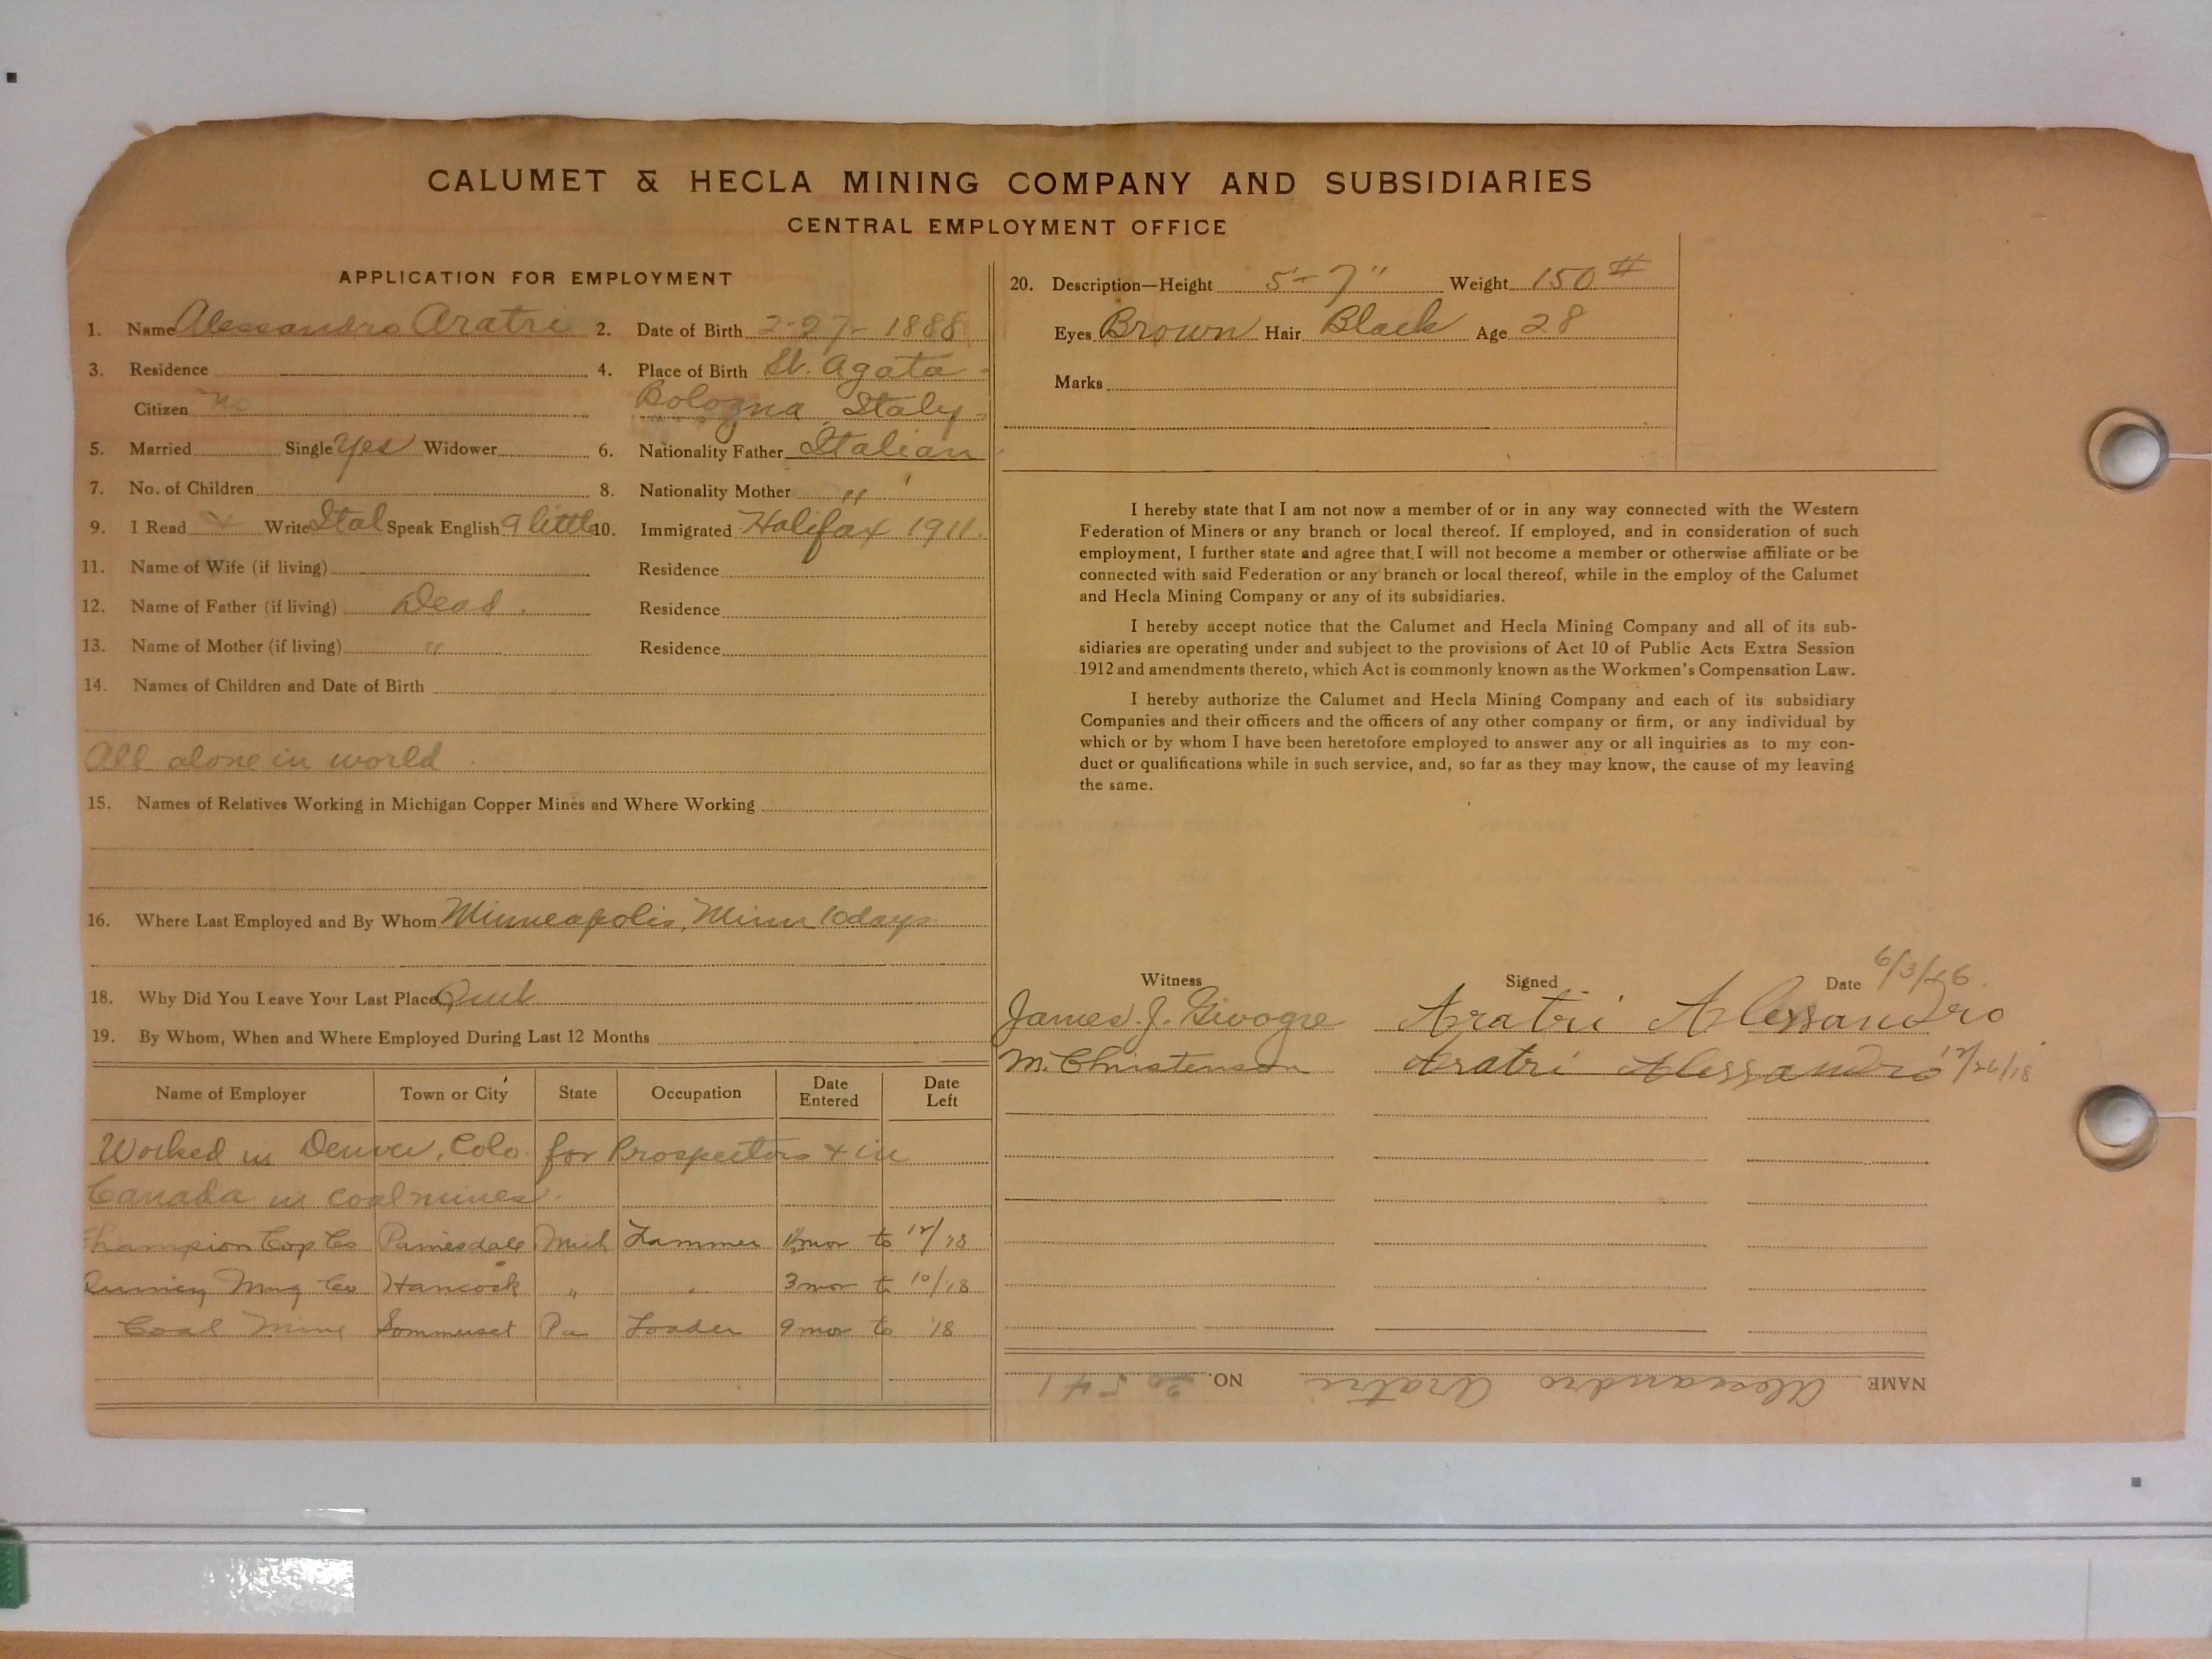 CALUMET & HECLA MINING COMPANY AND SUBSIDIARIES
CENTRAL EMPLOYMENT OFFICE
APPLICATION FOR EMPLOYMENT
1. Name Alessandro Aratri 2. Date of Birth 2-27-1888
3. Residence 4. Place of Birth St. Agata
Citizen no Bologna Italy
5. Married Single Yes Widower 6. Nationality Father Italian
7. No. of Children 8. Nationality Mother "
9. I Read Write Ital Speak English a little 10. Immigrated Halifax 1911.
11. Name of Wife (if living) Residence
12. Name of Father (if living) Dead. Residence
13. Name of Mother (if living) " Residence
14. Names of Children and Date of Birth
All alone in world.
15. Names of Relatives Working in Michigan Copper Mines and Where Working
16. Where Last Employed and By Whom Minneapolis, Minn 10 days.
18. Why Did You Leave Your Last Place Quit
19. By Whom, When and Where Employed During Last 12 Months
Name of Employer Town or City State Occupation Date Entered Date Left
Worked in Denver, Colo. for Prospectors & in
Canada in coal mines.
Champion Cop Co Painesdale Mich Trammer mos to 12/18
Quincy Mng Co Hancock " " 3 mos to 10/18
Coal Mine Sommerset Pa Loader 9 mos to '18
20. Description—Height 5'-7" Weight 150 #
Eyes Brown Hair Black Age 28
Marks
I hereby state that I am not now a member of or in any way connected with the Western
Federation of Miners or any branch or local thereof. If employed, and in consideration of such
employment, I further state and agree that I will not become a member or otherwise affiliate or be
connected with said Federation or any branch or local thereof, while in the employ of the Calumet
and Hecla Mining Company or any of its subsidiaries.
I hereby accept notice that the Calumet and Hecla Mining Company and all of its sub-
sidiaries are operating under and subject to the provisions of Act 10 of Public Acts Extra Session
1912 and amendments thereto, which Act is commonly known as the Workmen's Compensation Law.
I hereby authorize the Calumet and Hecla Mining Company and each of its subsidiary
Companies and their officers and the officers of any other company or firm, or any individual by
which or by whom I have been heretofore employed to answer any or all inquiries as to my con-
duct or qualifications while in such service, and, so far as they may know, the cause of my leaving
the same.
Witness Signed Date 6/3/16.
James J. Aratri Alessandro
M. Christensen Aratri Alessandro 12/26/18
NAME Alessandro Aratri NO. 20541